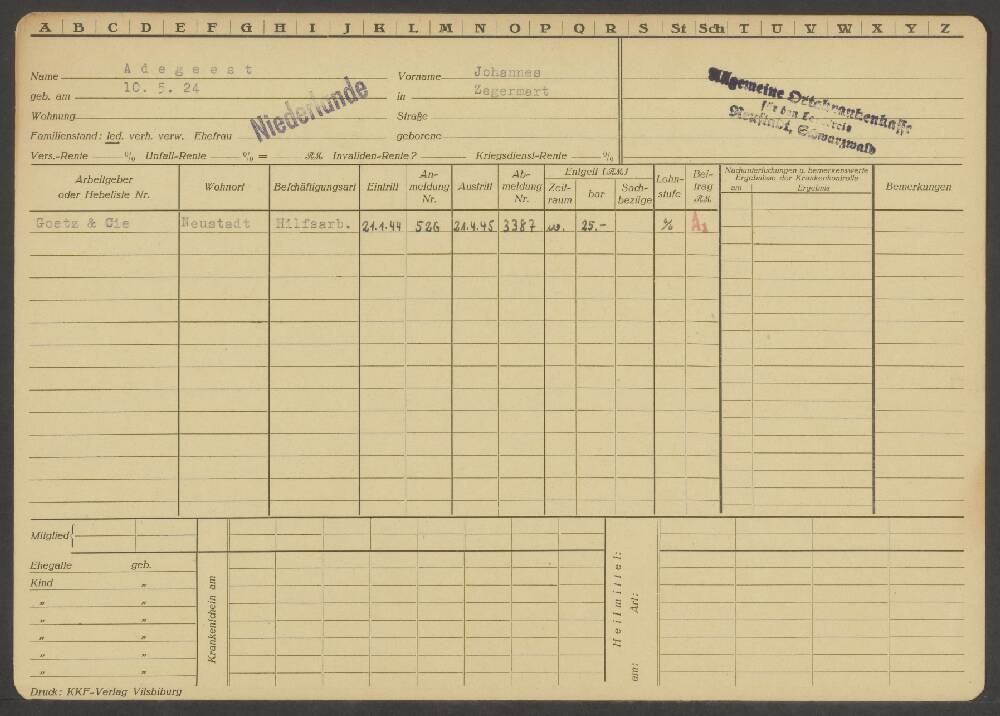 A B C D E F G H I J K L M N O P Q R S St Sch T U V W X Y Z
Name Adegeest Vorname Johannes
geb. am 10. 5. 24 in Zegermart
Wohnung Straße
Familienstand: led. verh. verw. Ehefrau geborene
Niederlande
Allgemeine Ortskrankenkasse
für den
Neustadt, Schwarzwald
Vers.-Rente % Unfall-Rente % = RM. Invaliden-Rente? Kriegsdienst-Rente %
Arbeitgeber oder Hebeliste Nr. Wohnort Beschäftigungsart Eintritt An-meldung Nr. Austritt Ab-meldung Nr. Entgelt (RM.) Zeit-raum bar Sach-bezüge Lohn-stufe Bei-trag RM. Nachuntersuchungen u. bemerkenswerte Ergebnisse der Krankenkontrolle am Ergebnis Bemerkungen
Goetz & Cie Neustadt Hilfsarb. 21.1.44 526 21.4.45 3387 w. 25.-
Mitglied
Ehegatte geb.
Kind "
" "
" "
" "
" "
" "
Krankenschein am
Heilmittel:
Art:
am:
Druck: KKF-Verlag Vilsbiburg